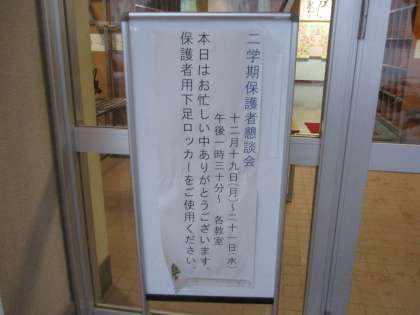 二学期保護者懇談会
十二月十九日(月)～二十一日(水)
午後一時三十分～ 各教室
本日はお忙しい中ありがとうございます。
保護者用下足ロッカーをご使用ください。